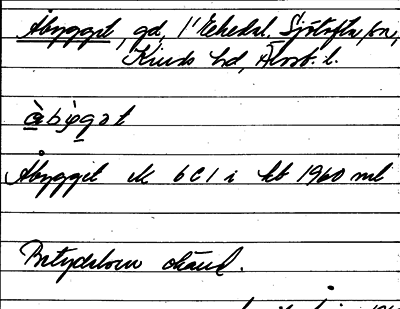 Åbygget, gd, 1" Ekedal, Sjötofta sn,
Kinds hd, Älvsb. l.
àbỳgǝt
Åbygget ek 6C1 i kb 1960 ml
Betydelsen okänd.